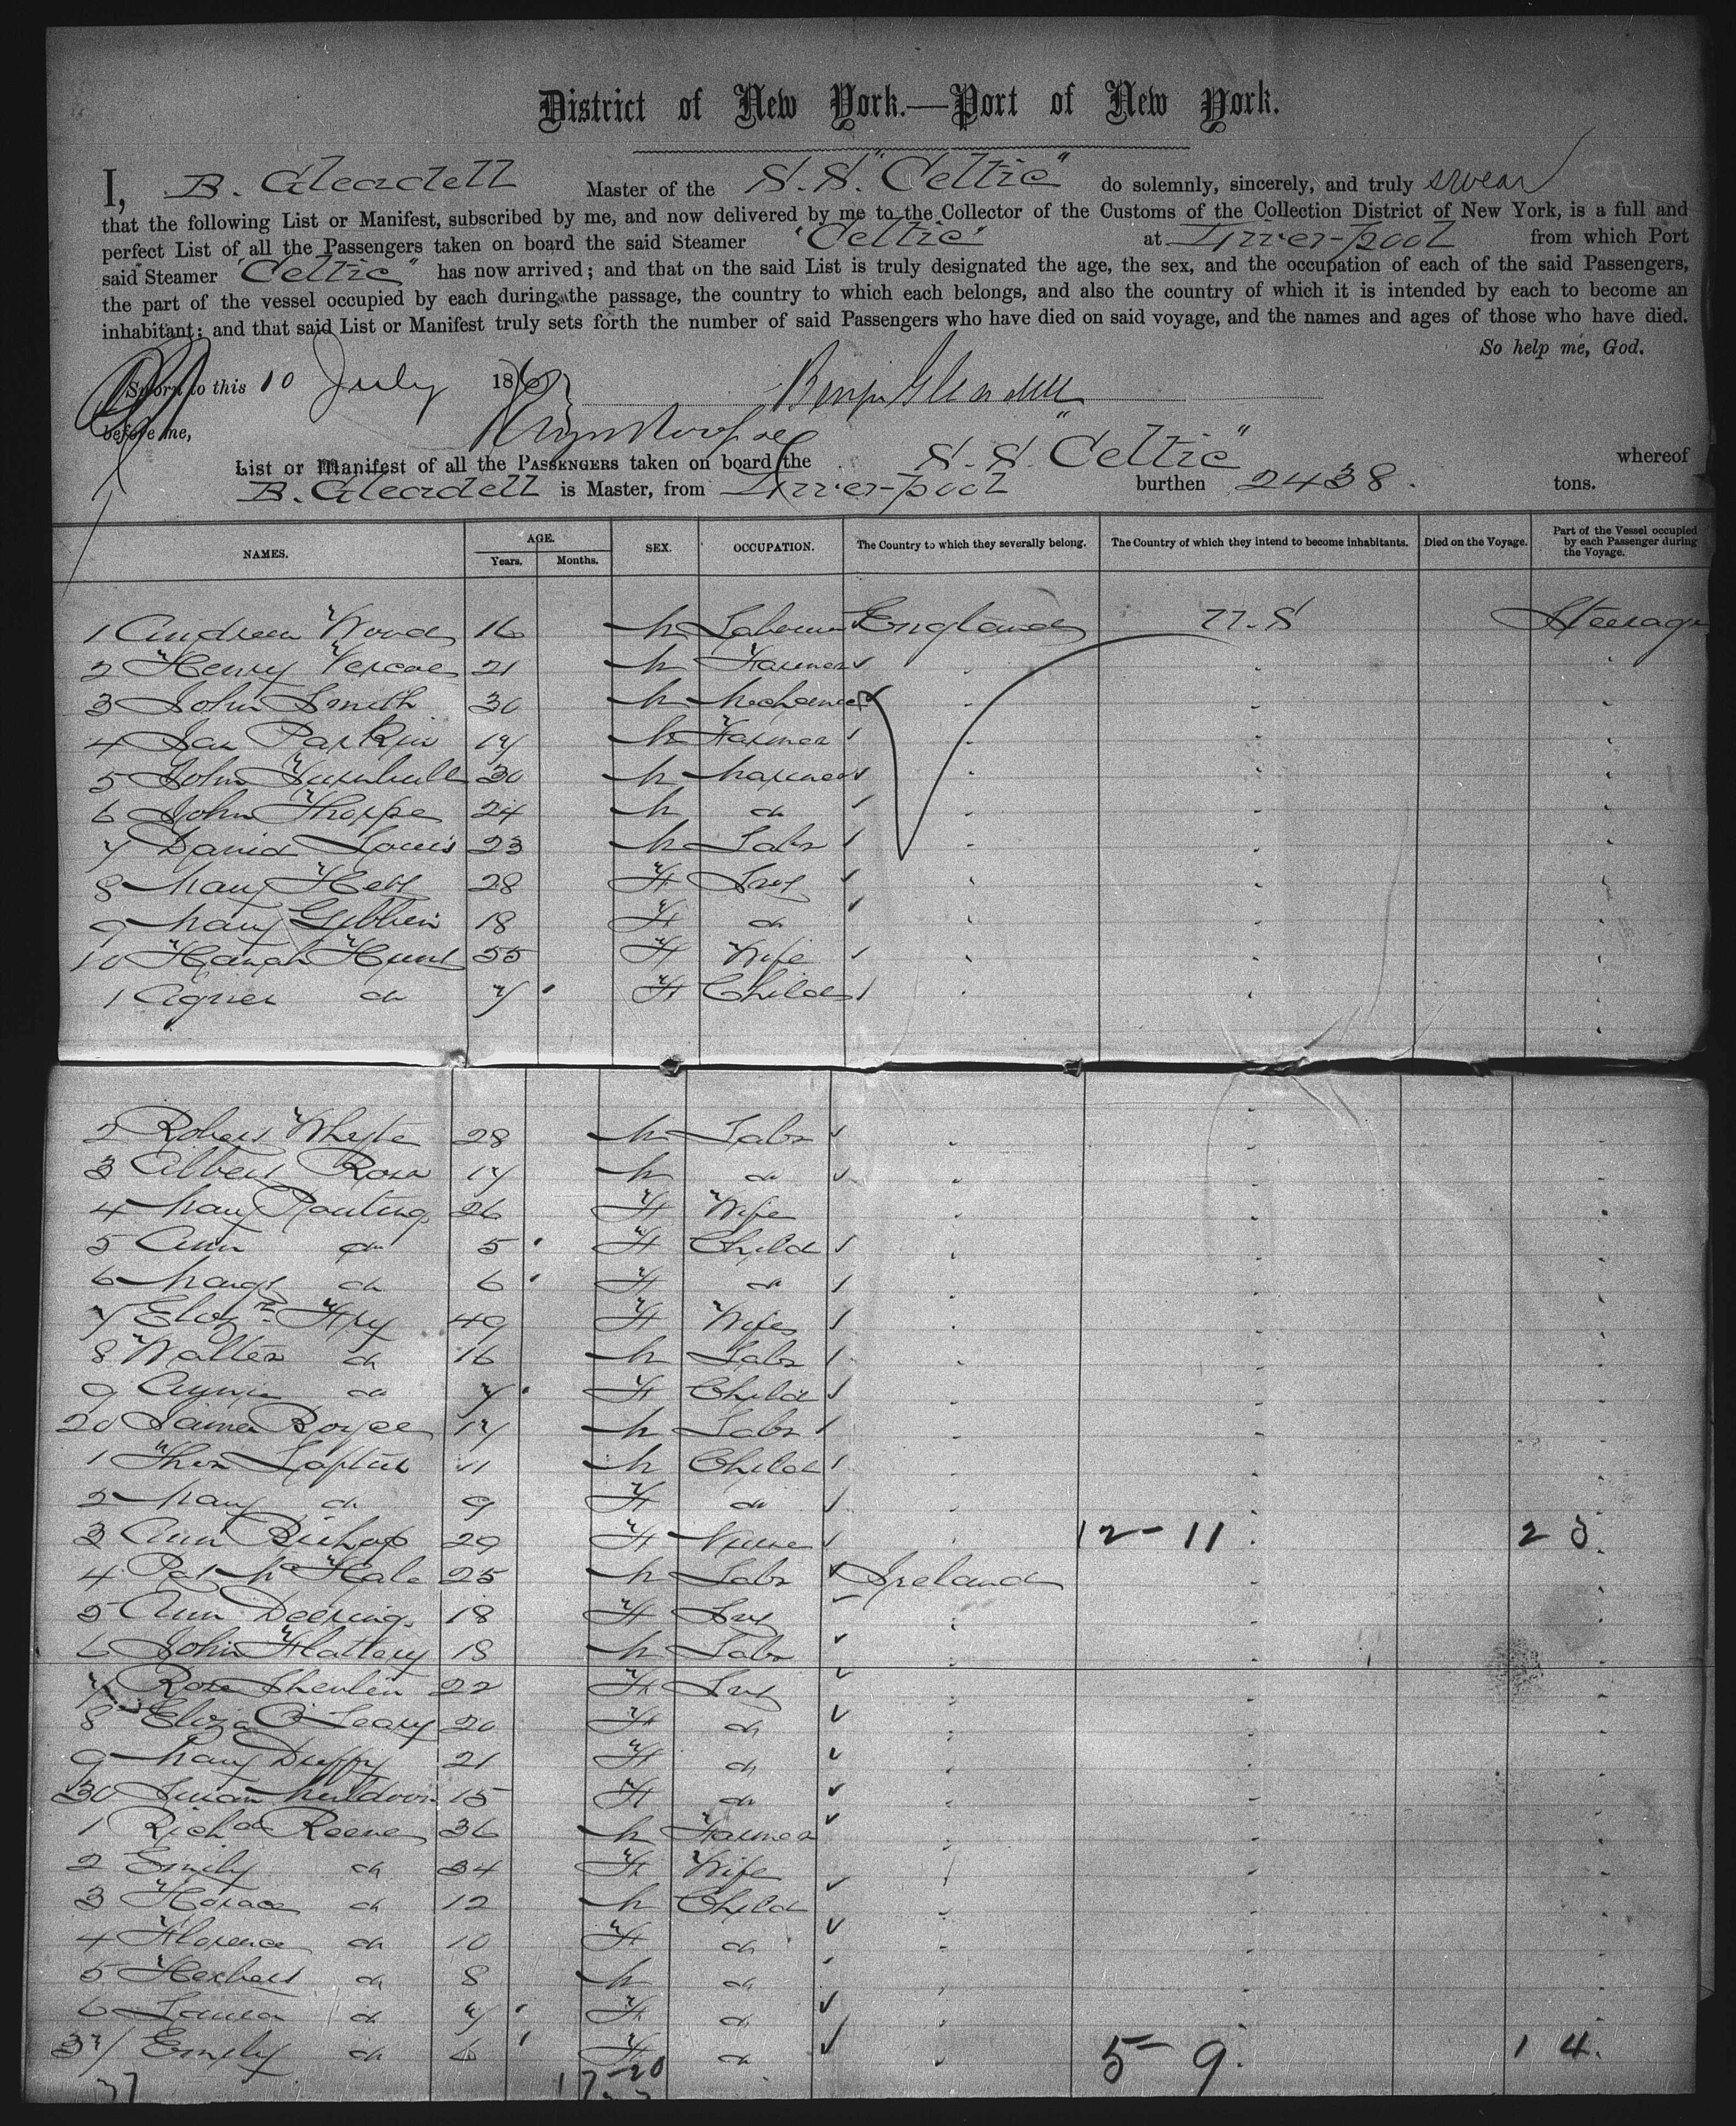 District of New York.—Port of New York.
I, B. Gleadell Master of the S.S. "Celtic" do solemnly, sincerely, and truly swear
that the following List or Manifest, subscribed by me, and now delivered by me to the Collector of the Customs of the Collection District of New York, is a full and
perfect List of all the Passengers taken on board the said Steamer "Celtic" at Liverpool from which Port
said Steamer "Celtic" has now arrived; and that on the said List is truly designated the age, the sex, and the occupation of each of the said Passengers,
the part of the vessel occupied by each during the passage, the country to which each belongs, and also the country of which it is intended by each to become an
inhabitant; and that said List or Manifest truly sets forth the number of said Passengers who have died on said voyage, and the names and ages of those who have died.
So help me, God.
Sworn to this 10 July 18 Benj. Gleadell
before me,
List or Manifest of all the PASSENGERS taken on board the S.S. "Celtic" whereof
B. Gleadell is Master, from Liverpool burthen 2438. tons.
NAMES. AGE. SEX. OCCUPATION. The Country to which they severally belong. The Country of which they intend to become inhabitants. Died on the Voyage. Part of the Vessel occupied by each Passenger during the Voyage.
Years. Months.
1 Andrew Wood 16 M Labourer England U.S Steerage
2 Henry Vercoe 21 M Farmer
3 John Smith 30 M Mechanic
4 Parkin 17 M Farmer
5 John Turnbull 30 M Mariner
6 John Thorpe 24 M do
7 David Louis 23 M Labr
8 Mary 28 F Srvt
9 Mary Gibbin 18 F do
10 Hanah Hunt 55 F Wife
1 Agnes do 7 F Child
2 Robert Whyte 28 M Labr
3 Albert Rosa 17 M do
4 Mary Ranting 26 F Wife
5 Ann do 5 F Child
6 Margt do 6 F do
7 Elizth Fry 49 F Wife
8 Walter do 16 M Labr
9 do 7 F Child
20 James Boyce 17 M Labr
1 Thos 11 M Child
2 Mary do 9 F do
3 Ann Bishop 29 F Nurse 12-11 23
4 Pat McHale 25 M Labr Ireland
5 Ann Deering 18 F Srvt
6 John Flattery 18 M Labr
7 Rose Shevlin 22 F Srvt
8 Eliza O'Leary 20 F do
9 Mary Duffy 21 F do
30 Susan Muldoon 15 F do
1 Richd Reeve 36 M Farmer
2 Emily do 34 F Wife
3 Horace do 12 M Child
4 Florence do 10 F do
5 Herbert do 8 M do
6 Laura do 7 F do
37 Emily do 6 F do 5-9. 14.
37 17-20